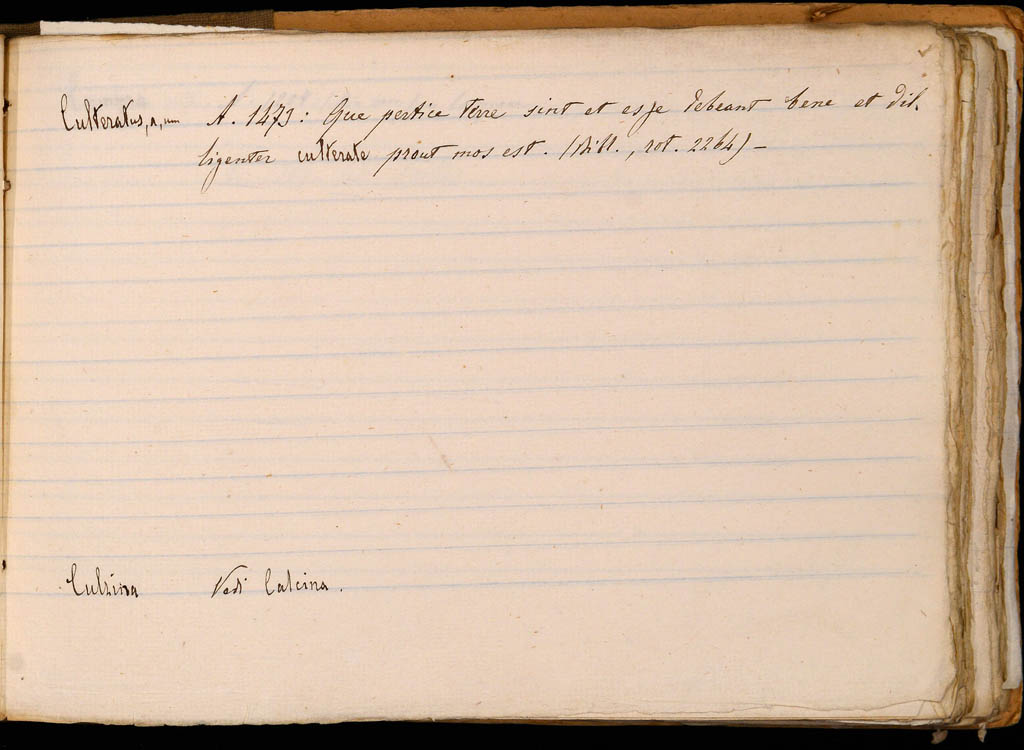 Culteratus, a, um A. 1473: Que pertice terre sint et esse debeant bene et dil.
ligenter culterate prout mos est. (Bibl., rot. 2264) –
Culzina Vedi Calcina.